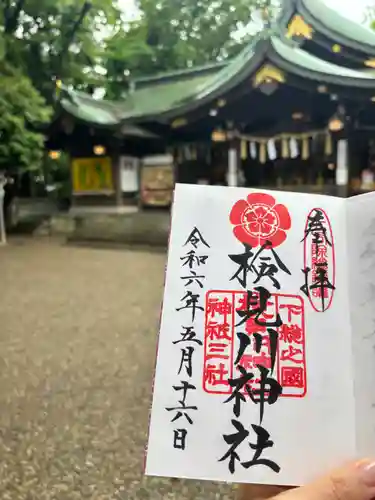 奉拝
下總之國
神祇三社
検見川神社
令和六年五月十六日